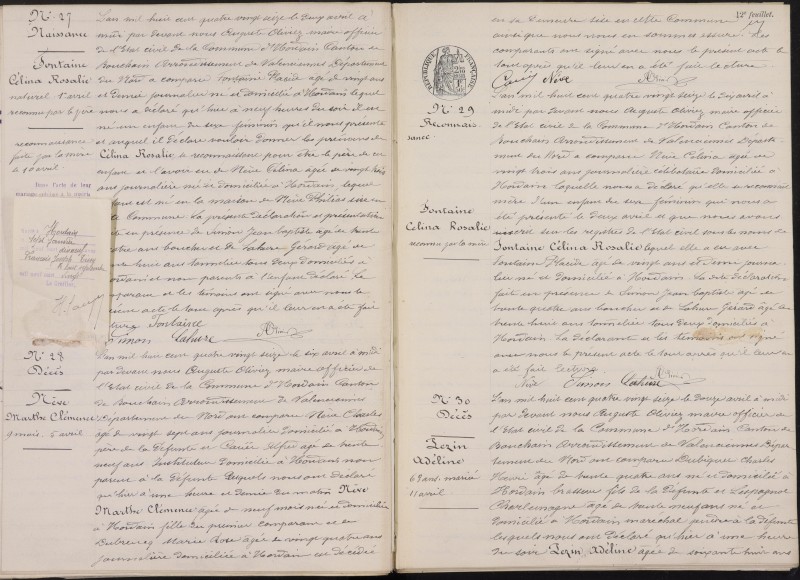 N° 27
Naissance
Fontaine
Célina Rosalie
naturel 1 avril
reconnue par le père
reconnaissance
faite par la mère
le 10 avril
N° 28
Décès
Nève
Marthe Clémence
9 mois, 5 avril
L'an mil huit cent quatre vingt seize le deux avril à
midi par devant nous Auguste Oliviez maire officier
de l'Etat civil de la Commune d'Hordain Canton de
Bouchain Arrondissement de Valenciennes Département
du Nord a comparu Fontaine Placide âgé de vingt ans
et demi journalier né et domicilié à Hordain lequel
nous a déclaré qu'hier à neuf heures du soir il est
né un enfant du sexe féminin qu'il nous présente
et auquel il déclare vouloir donner les prénoms de
Célina Rosalie se reconnaissant pour être le père de cet
enfant et l'avoir eu de Nève Célina âgée de vingt trois
ans journalière née et domiciliée à Hordain lequel
enfant est né en la maison de Nève
Commune La présente déclaration et présentation
en présence de Simon Jean Baptiste âgé de trente
quatre ans boucher et de Lahure Gérard âgé de
huit ans tonnelier tous deux domiciliés à
Hordain et non parents à l'enfant déclaré Le
comparant et les témoins ont signé avec nous le
présent acte après qu'il leur en a été fait
lecture Fontaine
Simon Lahure
L'an mil huit cent quatre vingt seize le six avril à midi
par devant nous Auguste Oliviez maire officier de
l'Etat civil de la Commune d'Hordain Canton
de Bouchain Arrondissement de Valenciennes
Département du Nord ont comparu Nève Charles
âgé de vingt sept ans journalier domicilié à Hordain
père de la défunte et
neuf ans instituteur domicilié à Hordain non
parent à la défunte lesquels nous ont déclaré
qu'hier à une heure et demie du matin Nève
Marthe Clémence âgée de neuf mois née et domiciliée
à Hordain fille du premier comparant et de
Dubrecq Marie Rose âgée de vingt quatre ans
journalière domiciliée à Hordain est décédée
12e feuillet.
en sa demeure sise en cette Commune
ainsi que nous nous en sommes assuré. Les
comparants ont signé avec nous le présent acte
après qu'il leur en a été fait lecture
Nève
RÉPUBLIQUE FRANÇAISE
N° 29
Reconnais-
sance
Fontaine
Célina Rosalie
reconnue par la mère
L'an mil huit cent quatre vingt seize le dix avril à
midi par devant nous Auguste Oliviez maire officier
de l'Etat civil de la Commune d'Hordain Canton de
Bouchain Arrondissement de Valenciennes Départe-
ment du Nord a comparu Nève Célina âgée de
vingt trois ans journalière célibataire domiciliée à
Hordain laquelle nous a déclaré qu'elle se reconnait
mère d'un enfant du sexe féminin qui nous a
été présenté le deux avril et que nous avons
inscrit sur les registres de l'Etat civil sous les noms de
Fontaine Célina Rosalie lequel elle a eu avec
Fontaine Placide âgé de vingt ans et demi journa-
lier né et domicilié à Hordain. La dite déclaration
fait en présence de Simon Jean Baptiste âgé de
trente quatre ans boucher et de Lahure Gérard âgé de
trente huit ans tonnelier tous deux domiciliés à
Hordain. La déclarante et les témoins ont signé
avec nous le présent acte après qu'il leur en
a été fait lecture
Nève Simon Lahure
N° 30
Décès
Lezin
Adéline
68 ans, mariée
11 avril
L'an mil huit cent quatre vingt seize le douze avril à midi
par devant nous Auguste Oliviez maire officier de
l'Etat civil de la Commune d'Hordain Canton de
Bouchain Arrondissement de Valenciennes Dépar-
tement du Nord ont comparu Dubiquez Charles
Henri âgé de trente quatre ans né et domicilié à
Hordain brasseur fils de la défunte et Lespagnol
Charlemagne âgé de trente neuf ans né et
domicilié à Hordain maréchal gendre à la défunte
lesquels nous ont déclaré qu'hier à une heure
du soir Lezin Adéline âgée de soixante huit ans